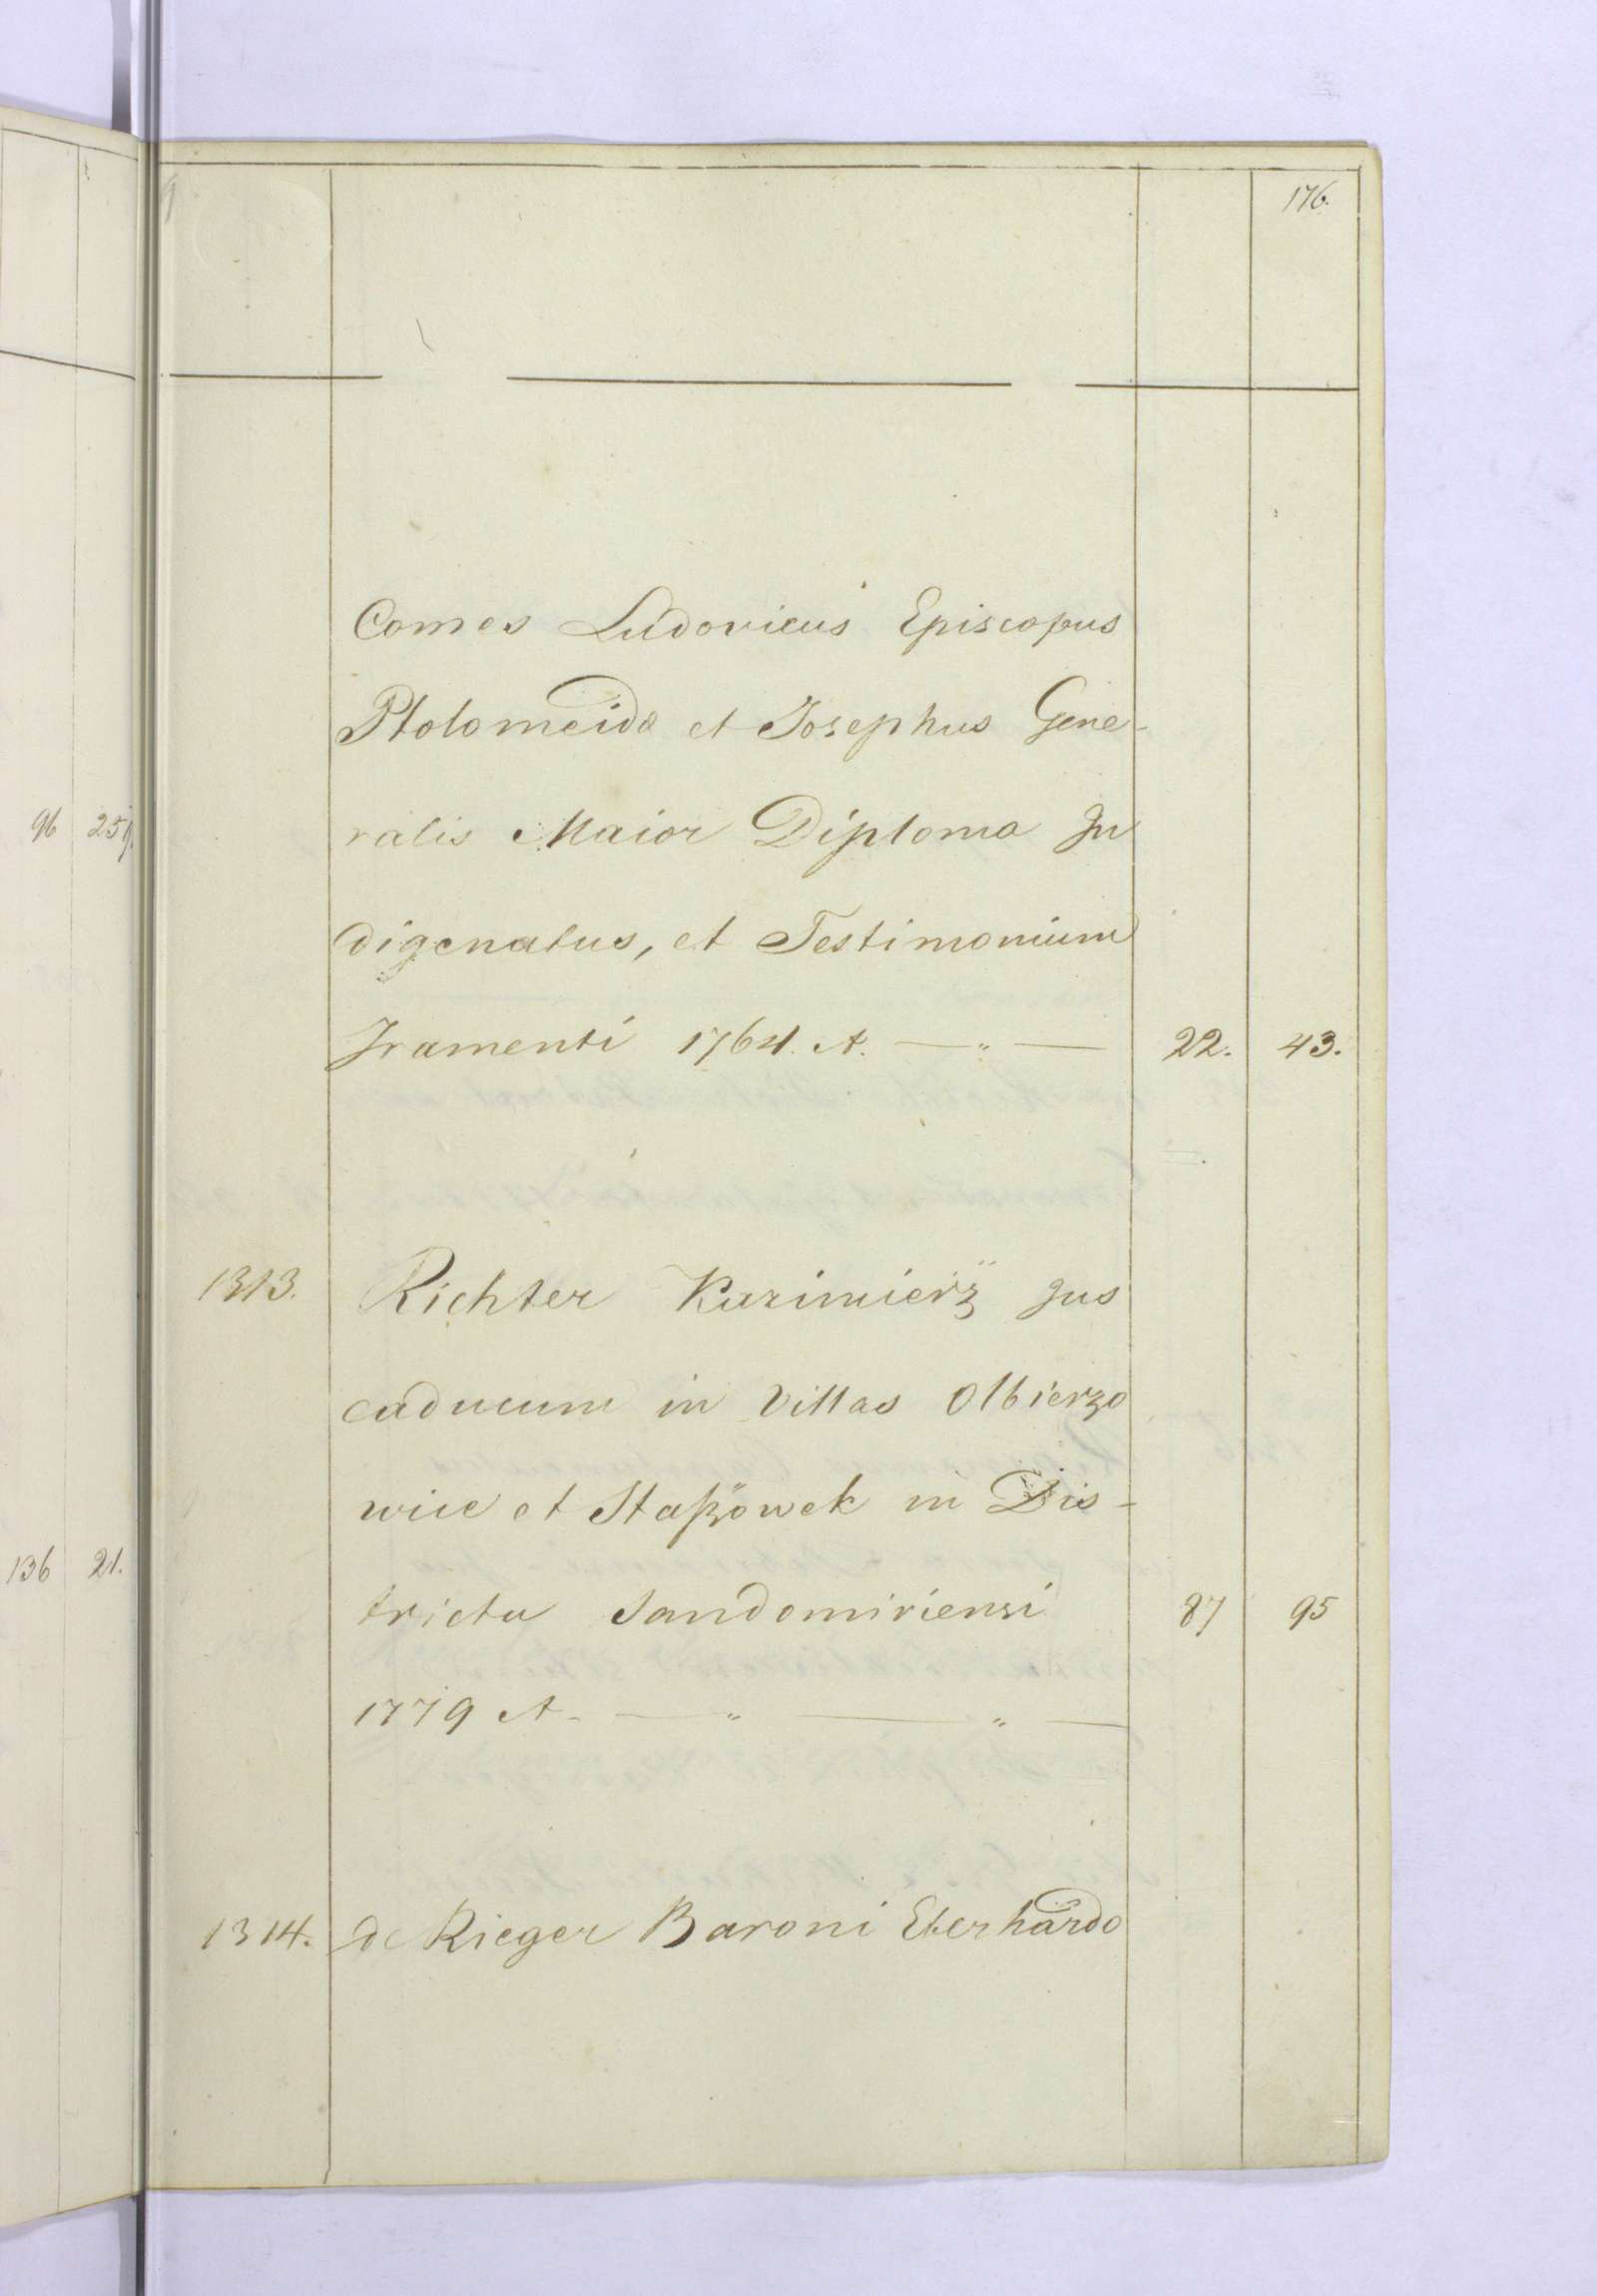 176.
Comes Ludovicus Episcopus
Ptolomeida et Josephus Gene-
ralis Maior Diploma In
digenatus, et Testimonium
Jramenti 1764. A. — „ — 22. 43.
1313. Richter Kazimierz Jus
caducum in Villas Olbierzo
wice et Staszowek in Dis-
trictu Sandomiriensi 87 95
1779 A. — „ — „ —
1314. de Rieger Baroni Eberhardo
96 259.
136 21.